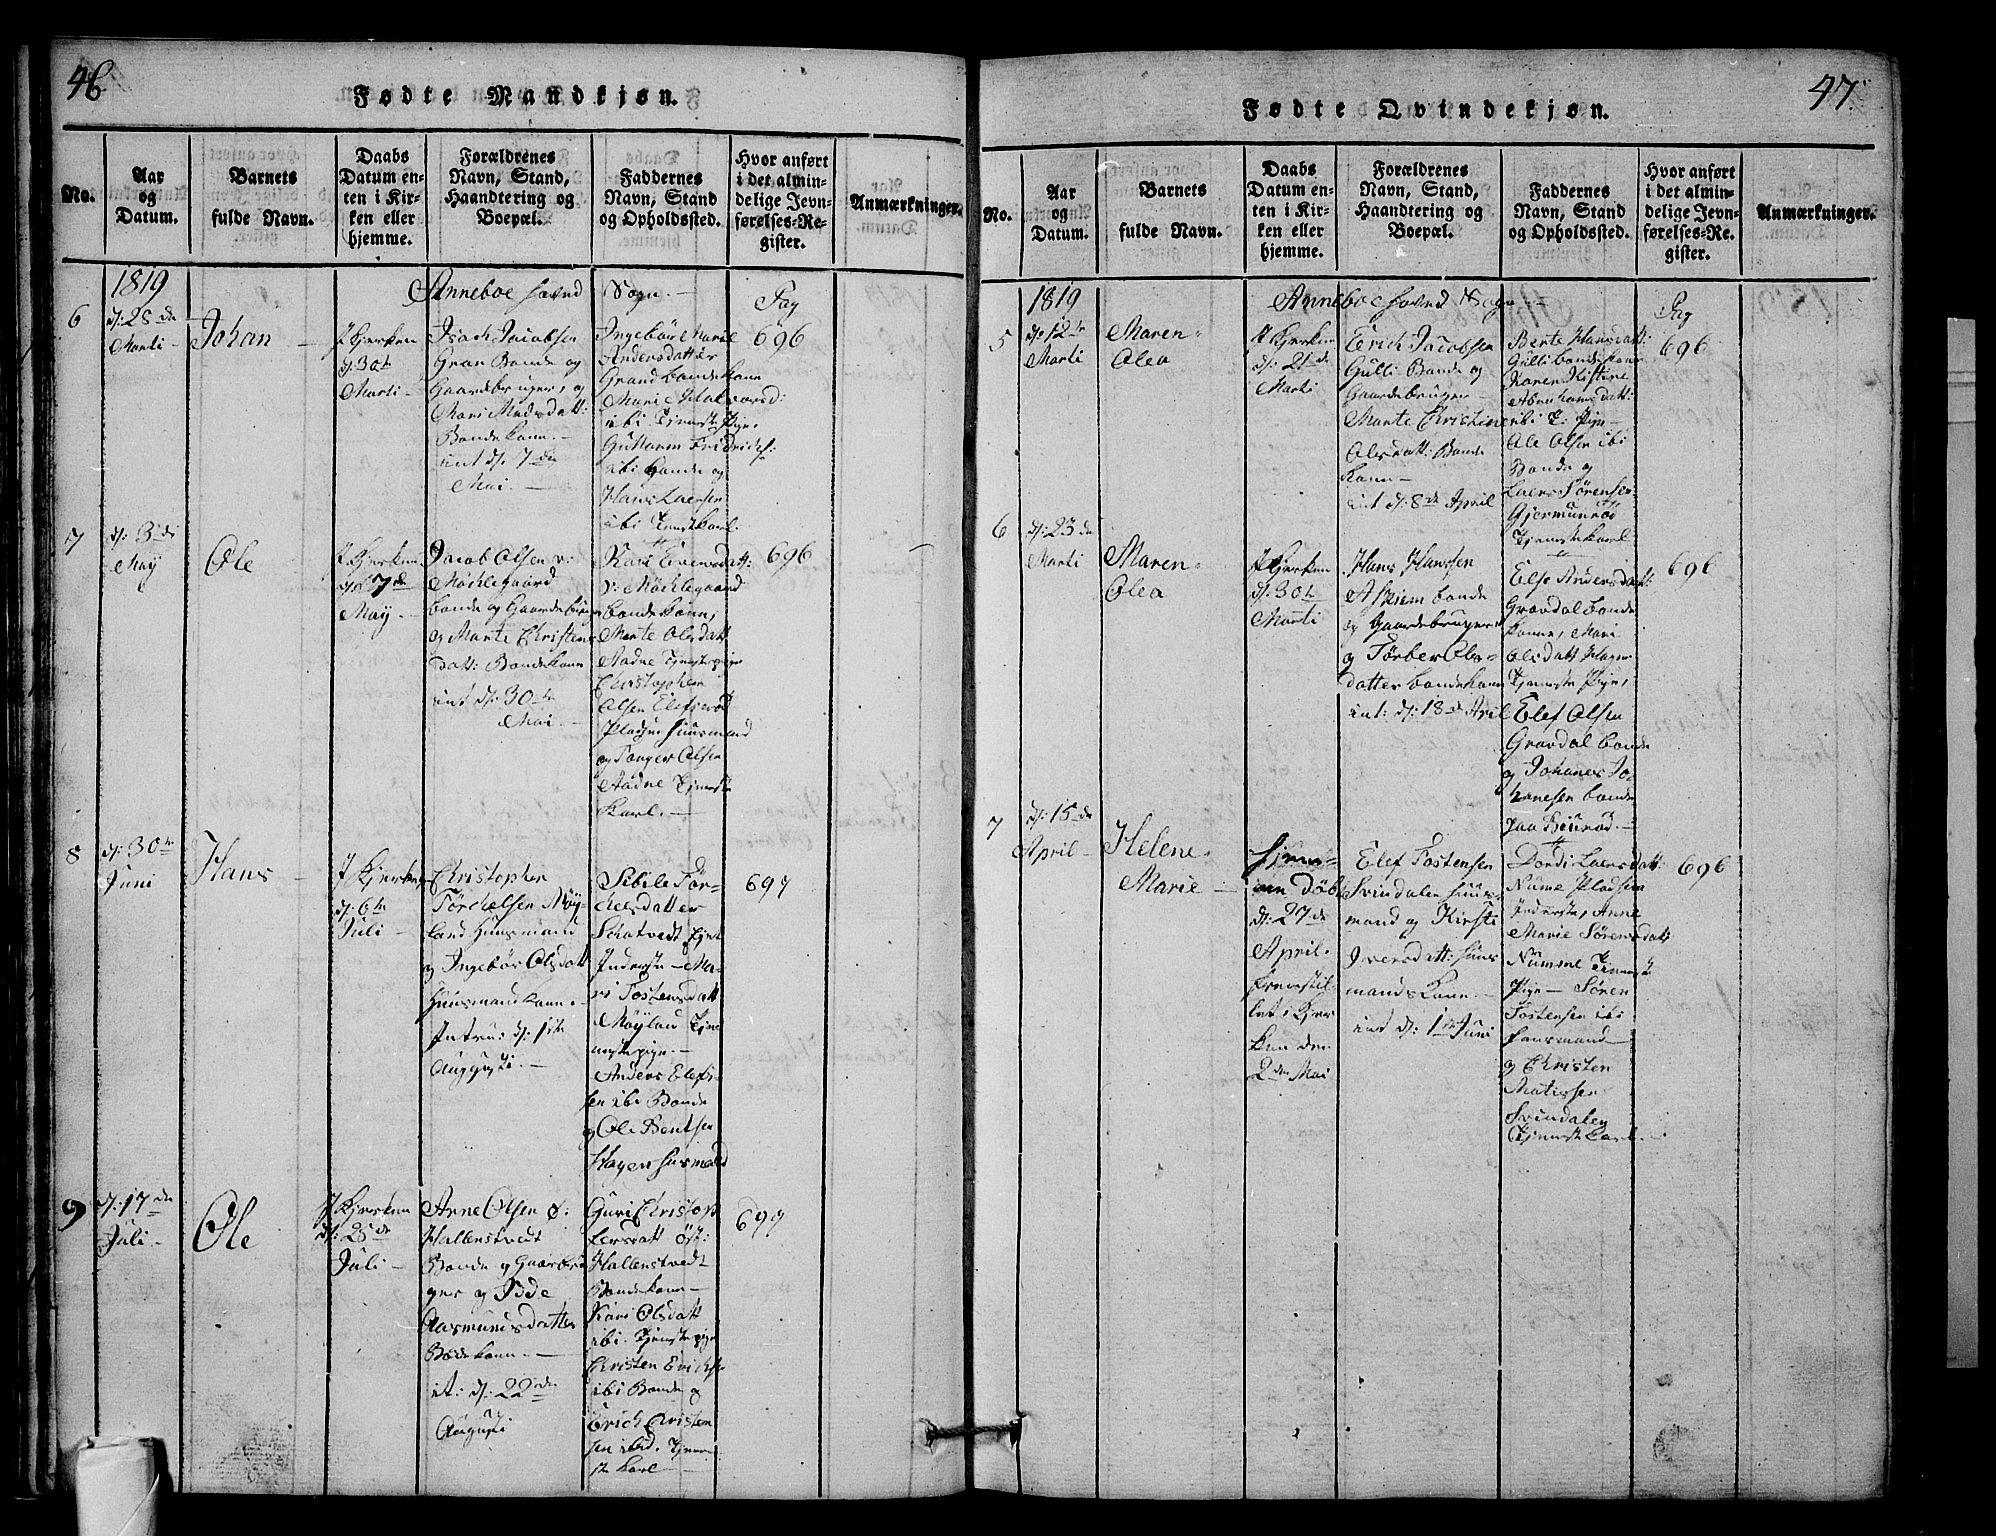 46
Fødte Mandkjøn.
No.
Aar
og
Datum.
Barnets
fulde Navn.
Daabs
Datum en-
ten i Kir-
ken eller
hjemme.
Forældrenes
Navn, Stand,
Haandtering og
Boepæl.
Faddernes
Navn, Stand
og Opholdssted.
Hvor anført
i det almin-
delige Jevn-
førelses-Re-
gister.
Anmærkninger.
1819
Anneboe hoved Sogn.
Pag
6
d: 28de
Marti
Johan
I Kjerken
d: 30te
Marti
Isach Jacobsen
Gran Bonde og
Gaardebruger, og
Mari Madsdatt:
Bondekone.
int d: 7de
Mai.
Ingebör Marie
Andersdatter
Grand bondekone
Mari Halvorsd:
ibi Tjenste Pige
Guttorm Fridrichs:
ibi bonde og
Hans Laersen
ibi Tjenstkarl.
696
7
d: 3di
May
Ole
I Kjerken
d: 7de
May
Jacob Olsen v:
Möchlegaard
bonde og Gaardebruger
og Marte Christens
datt: Bondekone
int d: 30te
Mai.
Kari Evensdatt:
v: Möchlegaard
bondekone,
Marte Olsdatt
Aadne Tjenstepige
Christopher
Olsen Elefsrød
Pladsen huusmand
og Torger Olsen
Aadne Tjenste
Karl.
696
8
d: 30te
Juni
Hans
I Kjerken
d: 6te
Juli
Christopher
Törchelsen Möy-
land Huusmand
og Ingebör Olsdatt
Huusmandkone.
Intru: d: 1te
Augusti.
Sibile Tör-
chelsdatter
Schatvedt
Inderste - Ma-
ri Tostensdatt
Möyland Tjene
stepige.
Anders Elefs
sen ibi Bonde
og Ole Bentsen
Hagen husmand
697
9
d: 17de
Juli
Ole
I Kjerken
d: 25de
Juli
Arne Olsen ø:
Hallenstvedt
Bonde og Gaardbru
ger og Idde
Aasmundsdatter
Bondekone.
it: d: 22de
Augusti
Guri Christop
hersdatt öst:
Hallenstvedt
Bondekone
Kari Olsdatt
ibi. Tjenstepige
Christen Erichse
ibi Bonde og
Erich Christen
sen ibid. Tjene
ste karl
697
47.
Fødte Qvindekjøn.
No.
Aar
og
Datum.
Barnets
fulde Navn.
Daabs
Datum en-
ten i Kir-
ken eller
hjemme.
Forældrenes
Navn, Stand,
Haandtering og
Boepæl.
Faddernes
Navn, Stand
og Opholdssted.
Hvor anført
i det almin-
delige Jevn-
førelses-Re-
gister.
Anmærkninger.
1819
Anneboe hoved Sogn.
Pag
5
d: 12te
Marti
Maren-
Olea
I Kjerken
d: 21de
Marti
Erich Jacobsen
Gulli Bonde og
Gaardebruger
Marte Christine
Olsdatt: Bonde
Kone
int d: 8de April
Berte Hansdatt:
Gulli bondekone
Karen Kistine
Abrahamsdatt:
ibi T: Pige
Ole Olsen ibi
Bonde og
Laers Sørensen
Gjermunrød
Tjenstekarl
696
6
d: 23de
Marti
Maren-
Olea
I Kjerken
d: 30te
Marti
Hans Hanssen
Askiem bonde
og Gaardebruger
og Törber Ols-
datter bondekone
int: d: 18de Apil
Else Andersdatt:
Gravdal bonde
Kone, Mari
Olsdatt Hagen
Tjenste Pige,
Elef Olsen
Gravdal bonde
og Johanes Jo-
hanesen bonde
696
7
d: 15de
April
Helene
Marie
hjem-
me döbt
d: 27de
April
fremstil-
let i Kjer
ken den
2den Mai
Elef Tostensen
Svindalen huus-
mand og Kirsti
Iversdatt: huus
mands Kone.
int d: 1te Juni
Dordi Laersdatt:
Nume Pladsen
Inderste, Anne
Marie Sörensdatt
Numme Tjeneste
Pige - Sören
Tostensen ibi
huusmand
og Christen
Matissen
Svindalen
Tjenstekarl
696